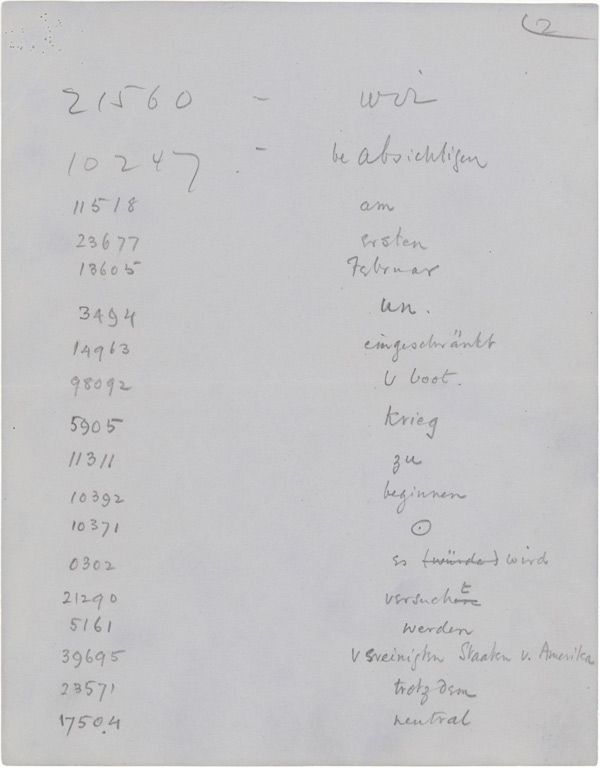 2
21560 - wir
10247 - beabsichtigen
11518 am
23677 ersten
13605 Februar
3494 un.
14963 eingeschränkt
98092 U boot.
5905 Krieg
11311 zu
10392 beginnen
10371 ⊙
0302 es (würde) wird
21290 versucht
5161 werden
39695 Vereinigten Staaten v. Amerika
23571 trotzdem
17504 neutral